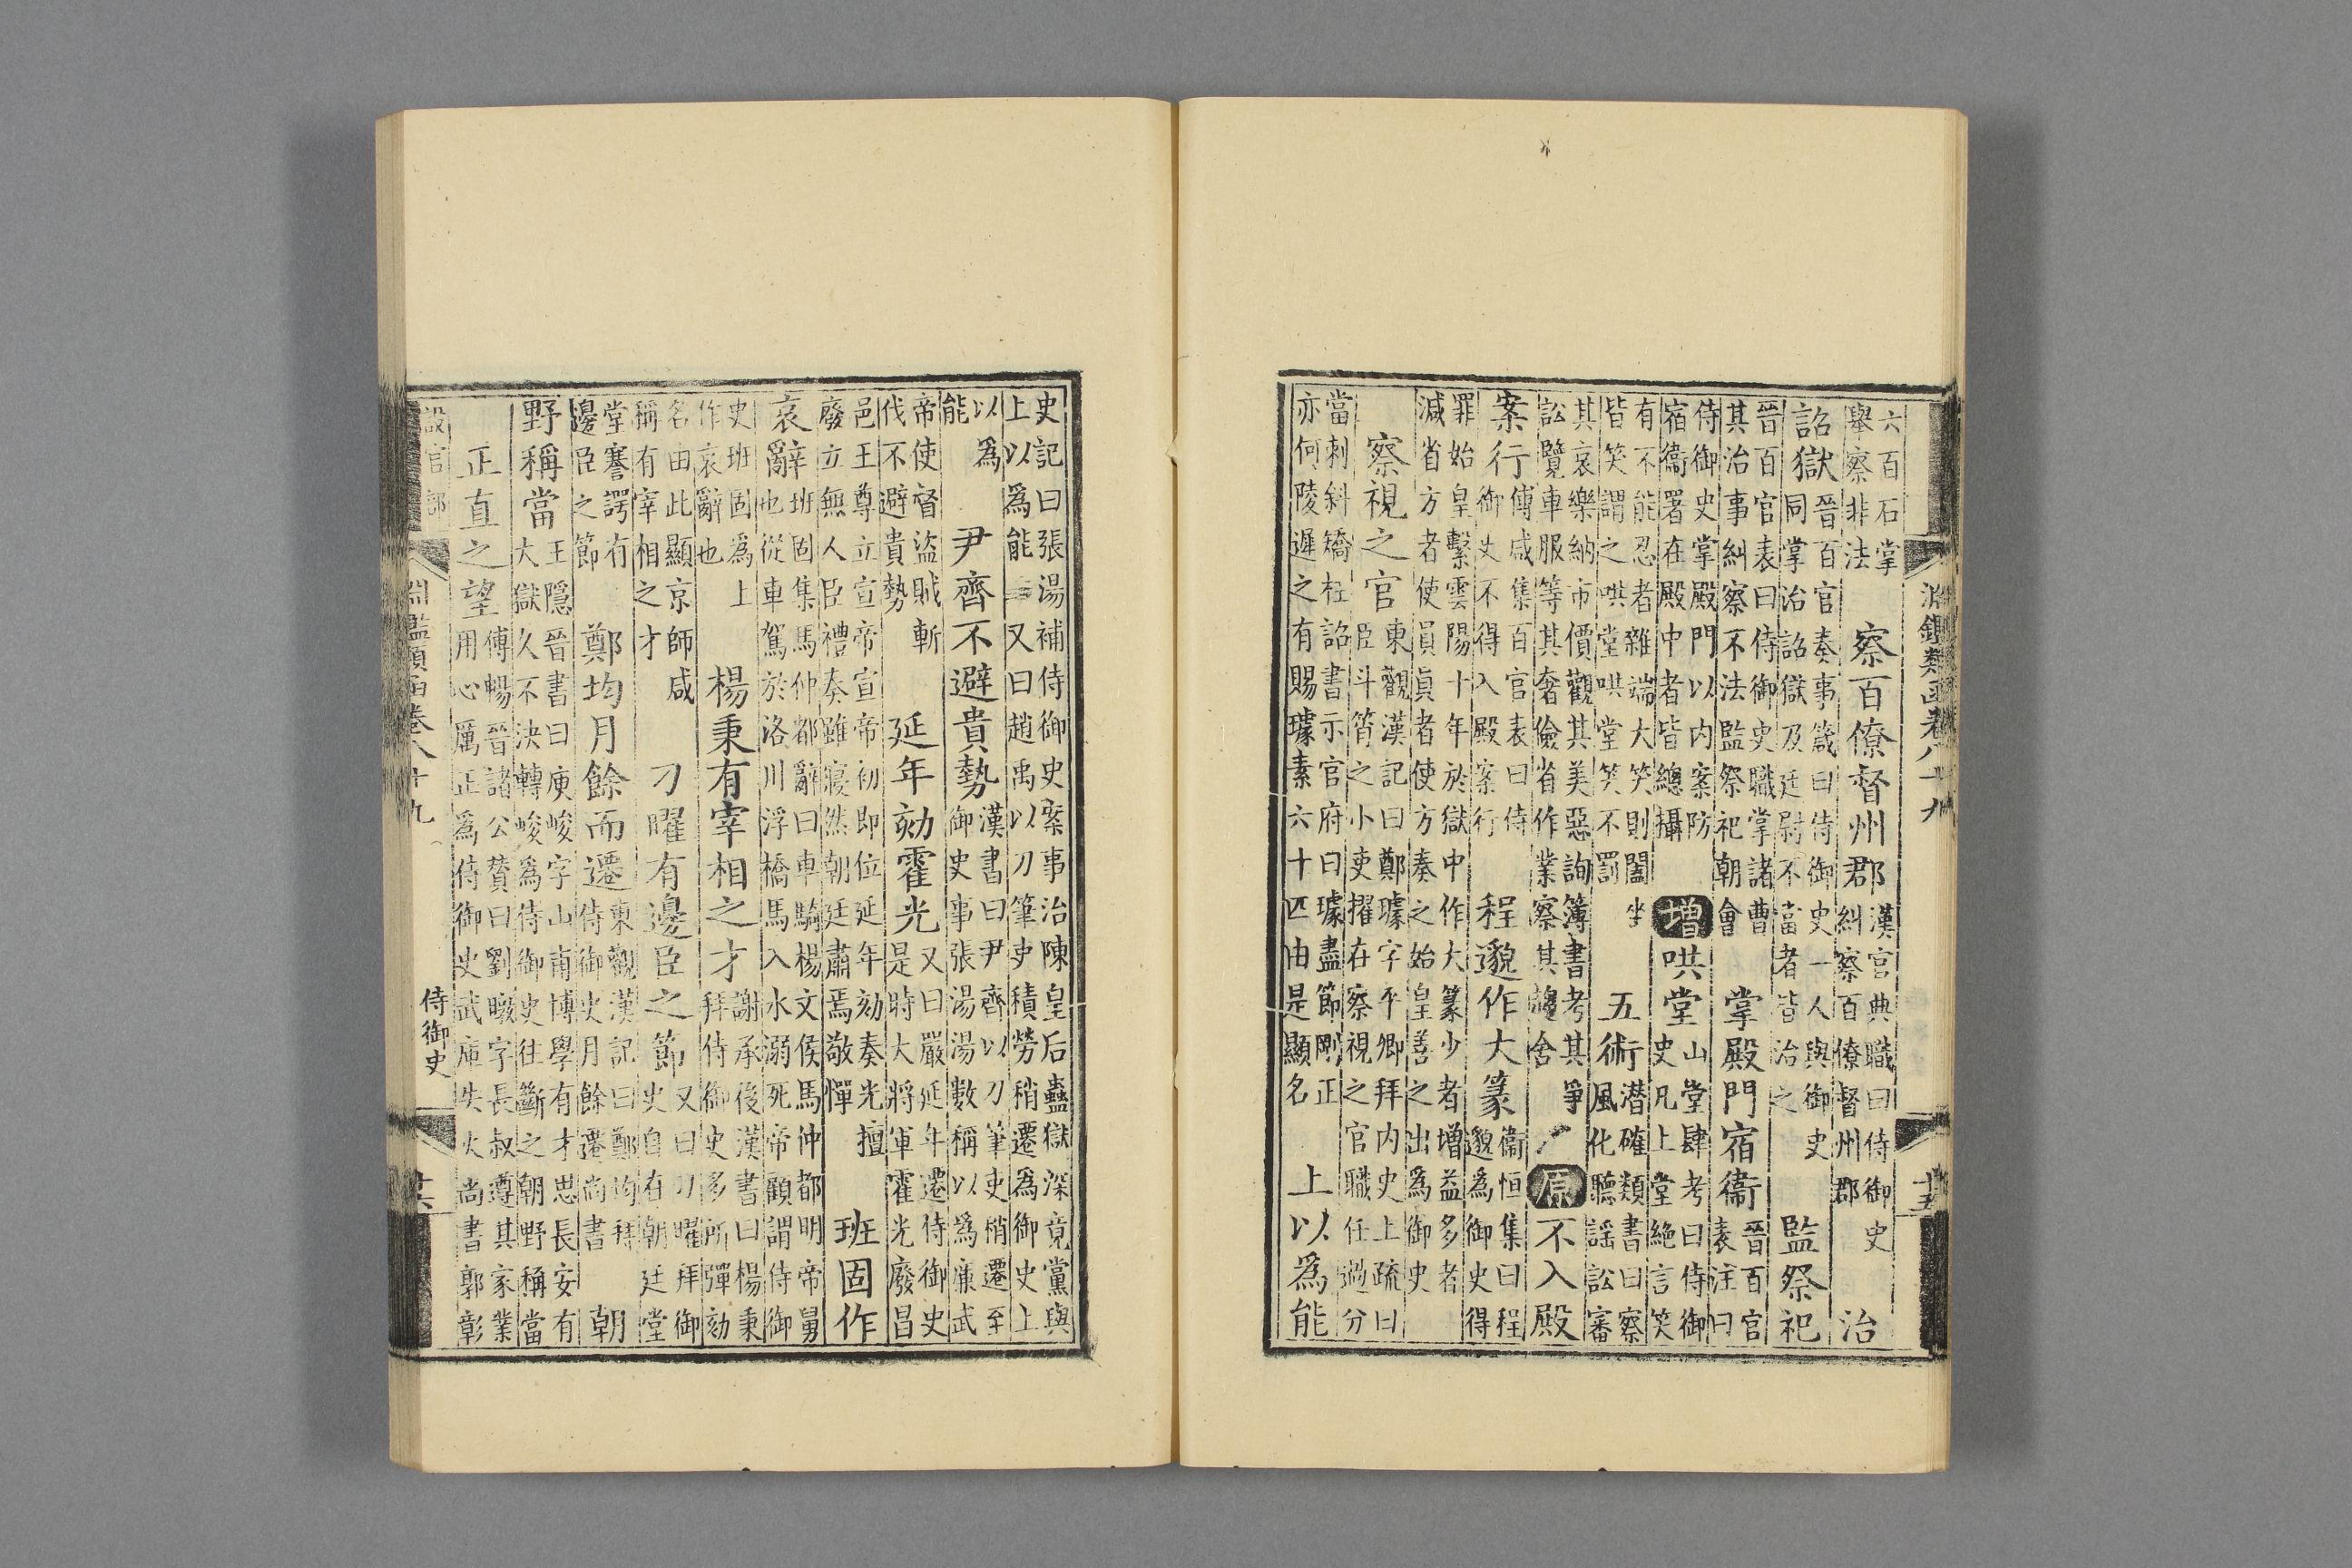 淵鑑類函卷八十九
十五
六百石掌
舉察非法
察百僚督州郡
漢官典職曰侍御史
糾察百僚督州郡
治
詔獄
晉百官奏事箴曰侍御史一人與御史
同掌治詔獄及廷尉不當者皆治之
監祭祀
晉百官表曰侍御史職掌諸曹
其治事糾察不法監祭祀朝會
掌殿門宿衞
晉百官
表注曰
侍御史掌殿門以內案防
宿衞署在殿中者皆總攝
增
哄堂
山堂肆考曰侍御
史凡上堂絕言笑
有不能忍者雜端大笑則闔坐
皆笑謂之哄堂哄堂笑不罰
五術
潛確類書曰察
風化聽謠訟審
其哀樂納市價觀其美惡詢簿書考其爭
訟覽車服等其奢儉省作業察其趨舍
原
不入殿
案行
傅咸集百官表曰侍
御史不得入殿案行
程邈作大篆
衞恒集曰程
邈爲御史得
罪始皇繫雲陽十年於獄中作大篆少者增益多者
減省方者使員員者使方奏之始皇善之出爲御史
察視之官
東觀漢記曰鄭璩字平卿拜內史上疏曰
臣斗筲之小吏擢在察視之官職任過分
當刺斜矯枉詔書示官府曰璩盡節剛正
亦何陵遲之有賜璩素六十匹由是顯名
上以爲能
史記曰張湯補侍御史案事治陳皇后蠱獄深竟黨與
上以爲能 又曰趙禹以刀筆吏積勞稍遷爲御史上
以爲
能
尹齊不避貴勢
漢書曰尹齊以刀筆吏稍遷至
御史事張湯湯數稱以爲廉武
帝使督盜賊斬
伐不避貴勢
延年劾霍光
又曰嚴延年遷侍御史
是時大將軍霍光廢昌
邑王尊立宣帝宣帝初即位延年劾奏光擅
廢立無人臣禮奏雖寢然朝廷肅焉敬憚
班固作
哀辭
班固集馬仲都辭曰車騎楊文侯馬仲都明帝舅
也從車駕於洛川浮橋馬入水溺死帝顧謂侍御
史班固爲上
作哀辭也
楊秉有宰相之才
謝承後漢書曰楊秉
拜侍御史多所彈劾
名由此顯京師咸
稱有宰相之才
刁曜有邊臣之節
又曰刀曜拜御
史自在朝廷堂
堂謇諤有
邊臣之節
鄭均月餘而遷
東觀漢記曰鄭均拜
侍御史月餘遷尚書
朝
野稱當
王隱晉書曰庾峻字山甫博學有才思長安有
大獄久不決轉峻爲侍御史往斷之朝野稱當
正直之望
傅暢晉諸公贊曰劉暾字長叔遵其家業
用心厲正爲侍御史武庫失火尚書郭彰
設官部
淵鑑類函卷八十九
侍御史
十六